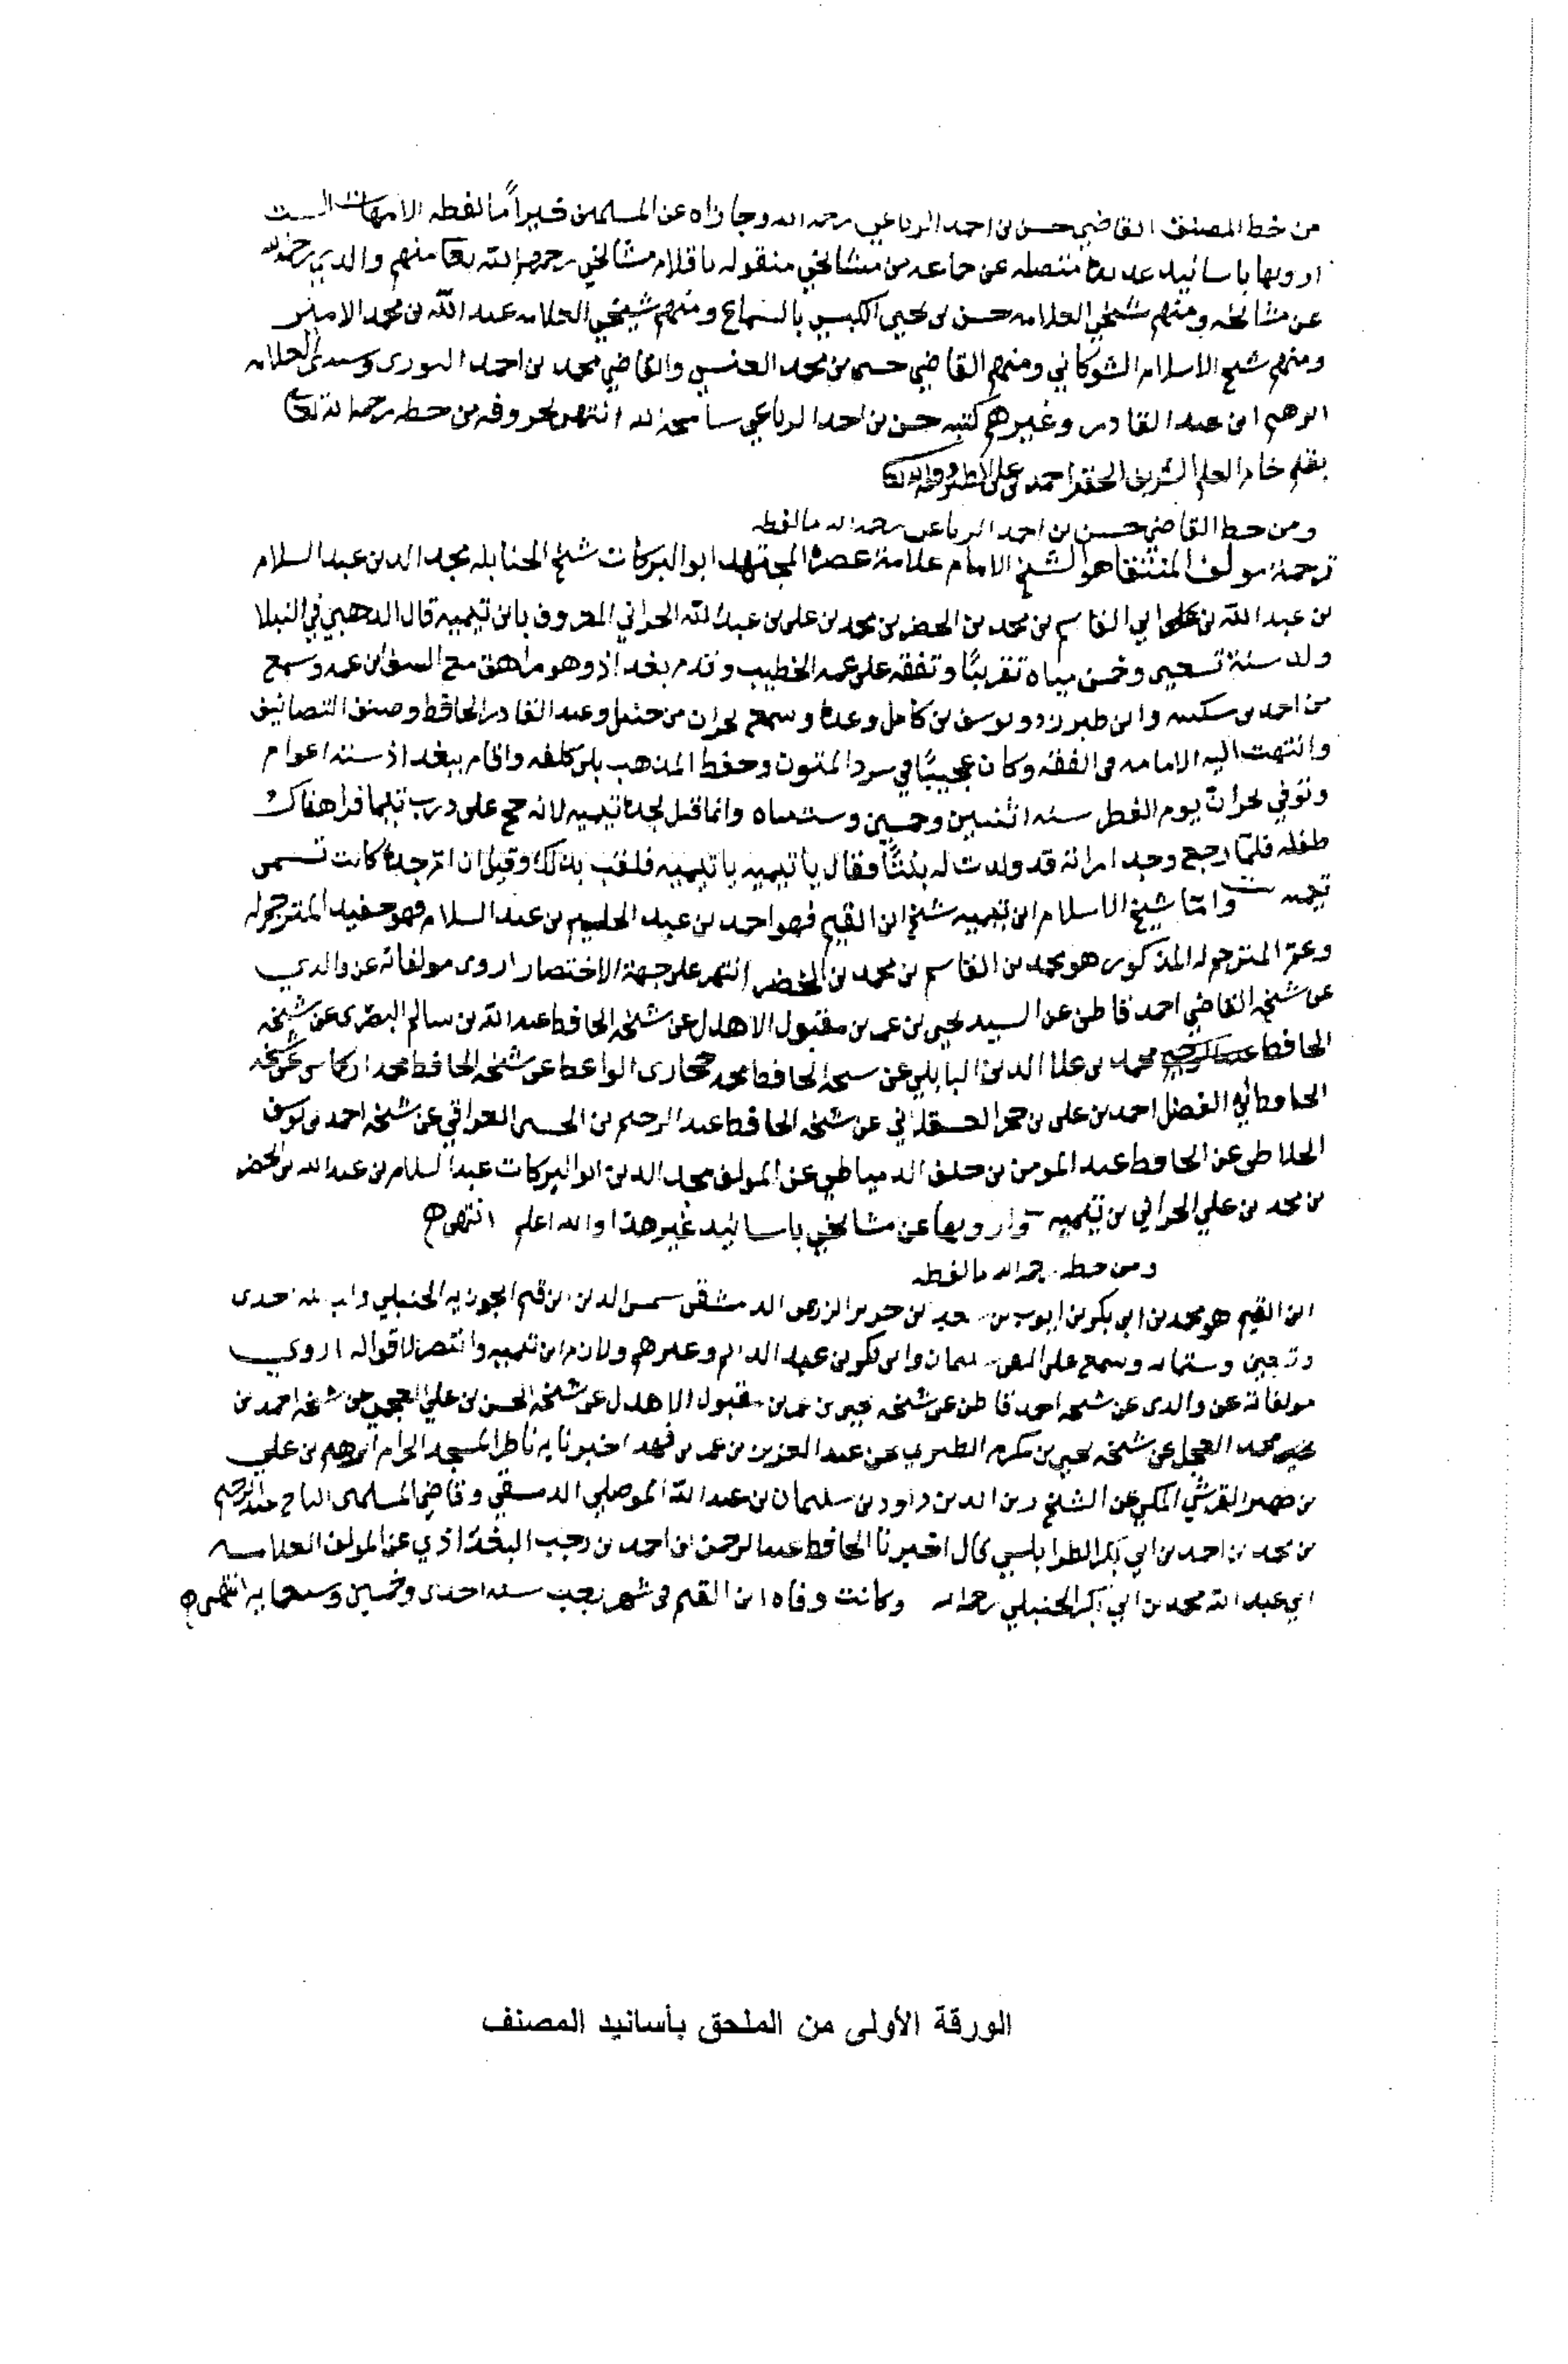 من خط المصنف القاضي حسن بن احمد الرباعي رحمه الله وجازاه عن المسلمين خيراً ما لفظه الامهات الست
ارويها باسانيد عديدة متصله عن جماعه من مشايخي منقوله باقلام مشايخي رحمهم الله تعا منهم والدي رحمه الله
عن مشايخه ومنهم شيخي العلامه حسن بن يحيى الكبسي بالسماع ومنهم شيخي العلامه عبد الله بن محمد الامير
ومنهم شيخ الاسلام الشوكاني ومنهم القاضي حسن بن محمد العنسي والقاضي محمد بن احمد السودي وسيدي العلامه
ابرهيم ابن عبد القادر وغيرهم كتبه حسن بن احمد الرباعي سامحه الله انتهى بحروفه من خطه رحمه الله تعا
بقلم خادم العلم الشريف الحقير احمد بن علي
ومن خط القاضي حسن بن احمد الرباعي رحمه الله ما لفظه
ترجمة مولف المنتقا هو الشيخ الامام علامة عصره المجتهد ابو البركات شيخ الحنابله مجد الدين عبد السلام
بن عبد الله بن ابي القاسم بن محمد بن الخضر بن محمد بن علي بن عبد الله الحراني المعروف بابن تيميه قال الذهبي في النبلا
ولد سنة تسعين وخمس مياه تقريبًا وتفقه على عمه الخطيب وقدم بغداذ وهو مراهق مع السيف ابن عمه وسمع
من احمد بن سكينه وابن طبرزد ويوسف بن كامل وعدة وسمع بحران من حنبل وعبد القادر الحافظ وصنف التصانيف
وانتهت اليه الامامه في الفقه وكان عجيبًا في سرد المتون وحفظ المذهب بلا كلفه واقام ببغداذ ستة اعوام
وتوفي بحران يوم الفطر سنه اثنين وخمسين وستمياه وانما قيل لجده تيميه لانه حج على درب تيما فراهناك
طفله فلما رجع وجد امراته قد ولدت له بنتًا فقال يا تيميه يا تيميه فلقب بذلك وقيل ان ام جده كانت تسمى
تيميه واما شيخ الاسلام ابن تيميه شيخ ابن القيم فهو احمد بن عبد الحليم بن عبد السلام فهو حفيد المترجم له
وعم المترجم له المذكور هو محمد بن القاسم بن محمد بن الخضر انتهى على جهة الاختصار اروى مولفاته عن والدي
عن شيخه القاضي احمد قاطن عن السيد يحيى بن عمر بن مقبول الاهدل عن شيخه الحافظ عبد الله بن سالم البصري عن شيخه
الحافظ محمد بن علا الدين البابلي عن شيخه الحافظ محمد حجازي الواعظ عن شيخه الحافظ محمد اركماس عن شيخه
الحافظ ابي الفضل احمد بن علي بن حجر العسقلاني عن شيخه الحافظ عبد الرحيم بن الحسين العراقي عن شيخه احمد بن يوسف
الخلاطي عن الحافظ عبد المومن بن خلف الدمياطي عن المولف مجد الدين ابو البركات عبد السلام بن عبد الله بن الخضر
بن محمد بن علي الحراني بن تيميه وارويها عن مشايخي باسانيد غير هذا والله اعلم انتهى
ومن خطه رحمه الله ما لفظه
ابن القيم هو محمد بن ابي بكر بن ايوب بن سعد بن حريز الزرعي الدمشقي شمس الدين بن قيم الجوزيه الحنبلي ولد سنه احدى
وتسعين وستمايه وسمع على التقي سليمان وابي بكر بن عبد الدايم وغيرهم ولازم ابن تيميه وانتصر لاقواله اروي
مولفاته عن والدي عن شيخه احمد قاطن عن شيخه يحيى بن عمر بن مقبول الاهدل عن شيخه الحسن بن علي العجيمي عن شيخه احمد بن
محمد العجل عن شيخه يحيى بن مكرم الطبري عن عبد العزيز بن عمر بن فهد اخبرنا به ناظر المسجد الحرام ابرهيم بن علي
بن ظهيره القرشي المكي عن الشيخ زين الدين داود بن سليمان بن عبد الله الموصلي الدمشقي وقاضي المسلمين التاج عبد الرحيم
بن محمد بن احمد بن ابي بكر الطرابلسي قال اخبرنا الحافظ عبد الرحمن ابن احمد بن رجب البغداذي عن المولف العلامه
ابي عبد الله محمد بن ابي بكر الحنبلي رحمه الله وكانت وفاه ابن القيم في شهر رجب سنه احدى وخمسين وسبعمايه انتهى
الورقة الأولى من الملحق بأسانيد المصنف